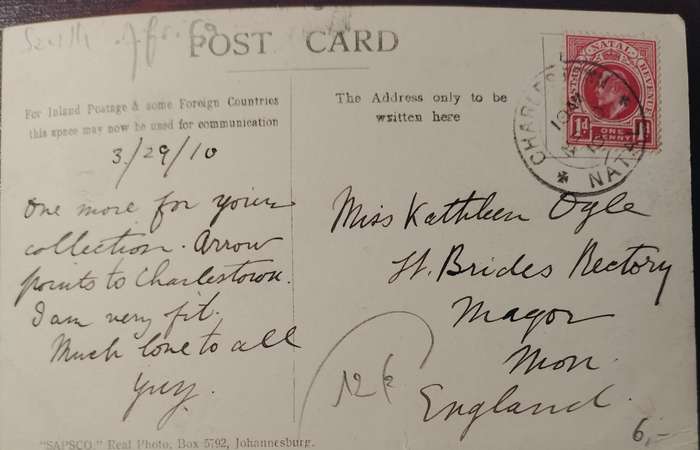 South Africa
POST CARD
For Inland Postage & some Foreign Countries
this space may now be used for communication
The Address only to be
written here
NATAL
POSTAGE REVENUE
1d ONE PENNY 1d
CHARLESTOWN
NATAL
3/29/10
One more for your
collection. Arrow
points to Charlestown.
I am very fit.
Much love to all
Guy.
Miss Kathleen Ogle
St. Brides Rectory
Magor
Mon.
England.
6,-
"SAPSCO" Real Photo, Box 5792, Johannesburg.